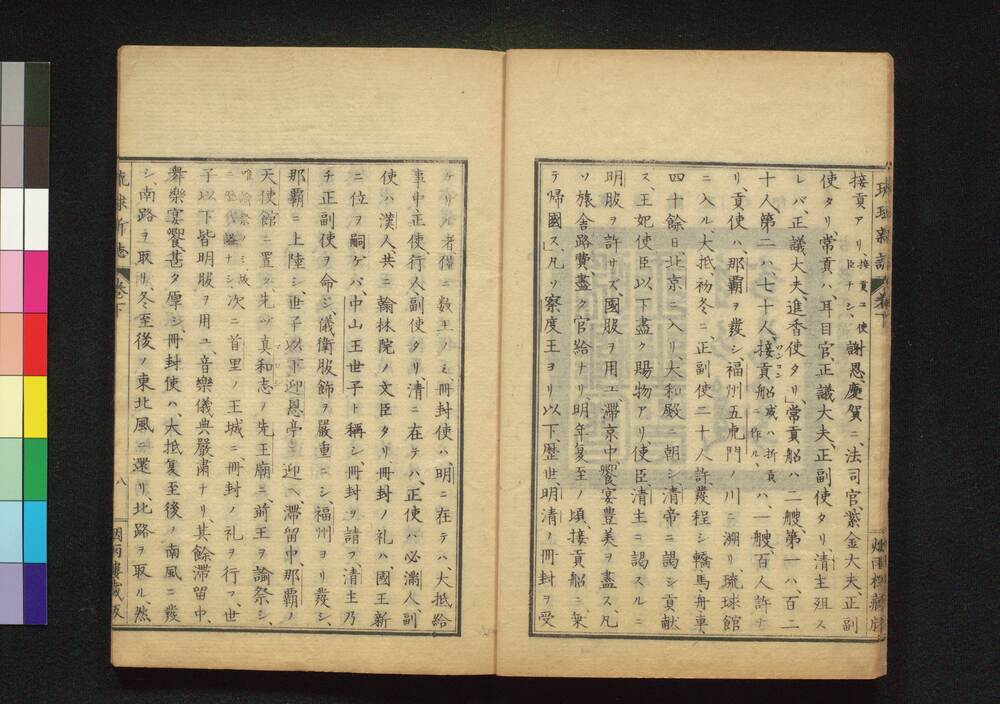 琉球新誌 卷下 烟雨樓藏版
接貢アリ、接貢ニ使臣ナシ、謝恩、慶賀ニ、法司官、紫金大夫、正副
使タリ、常貢ハ、耳目官、正議大夫、正副使タリ、清主殂ス
レバ、正議大夫、進香使タリ、」常貢船ハ二艘、第一ハ、百二
十人、第二ハ、七十人、接貢船或ハ折貢ニ作ル、ハ、一艘、百人許ナ
リ、貢使ハ、那覇ヲ發シ、福州五虎門ノ川ニ溯リ、琉球館
ニ入ル、大抵初冬ニ、正副使二十人許發程シ、轎馬舟車、
四十餘日、北京ニ入リ、大和殿ニ朝シ、清帝ニ謁シ、貢献
ス、王妃使臣以下、盡ク賜物アリ、使臣、清主ニ謁スルニ
明服ヲ許サズ、國服ヲ用ユ、滯京中、饗宴豊美ヲ盡ス、凡
ソ旅舎路費、盡ク官給ナリ、明年复至ノ頃、接貢船ニ乗
テ歸國ス、」凡ソ察度王ヨリ以下、歴世明清ノ冊封ヲ受
ケザル者、僅ニ數王ノミ、冊封使ハ、明ニ在テハ、大抵給
事中正使、行人副使タリ、清ニ在テハ、正使ハ必滿人、副
使ハ漢人、共ニ翰林院ノ文臣タリ、冊封ノ礼ハ、國王新
ニ位ヲ嗣ゲバ、中山王世子ト稱シ、冊封ヲ請フ、清主乃
チ正副使ヲ命シ、儀衛服飾ヲ嚴重ニシ、福州ヨリ發シ、
那覇ニ上陸シ、世子以下迎恩亭ニ迎ヘ、滯留中、那覇ノ
天使館ニ置ク、先ツ真和志ノ先王廟ニ、前王ヲ諭祭シ、
次ニ首里ノ王城ニ、冊封ノ礼ヲ行フ、世
子以下皆明服ヲ用ユ、音樂儀典嚴肅ナリ、其餘滯留中、
舞樂宴饗甚タ厚シ、冊封使ハ、大抵复至後ノ南風ニ發
シ、南路ヲ取リ、冬至後ノ東北風ニ還リ、北路ヲ取ル、然
琉球新志 卷下 八 烟雨樓藏版